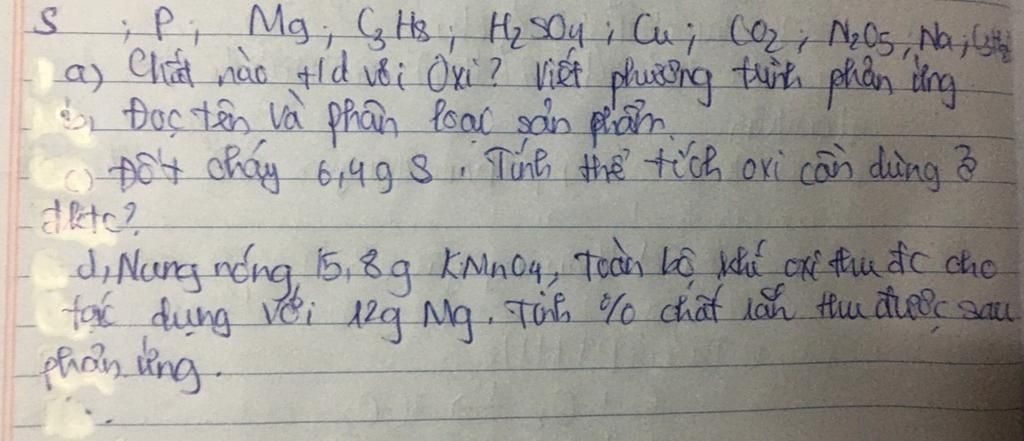 S ; P ; Mg ; C3H8 ; H2SO4 ; Cu ; CO2 ; N2O5, Na ;
a) Chất nào t/d với Oxi? Viết phương trình phản ứng
b, Đọc tên và phân loại sản phẩm.
c) Đốt cháy 6,4g S. Tính thể tích oxi cần dùng ở
đktc?
d, Nung nóng 15,8g KMnO4, toàn bộ khí oxi thu đc cho
tác dụng với 12g Mg. Tính % chất rắn thu được sau
phản ứng.